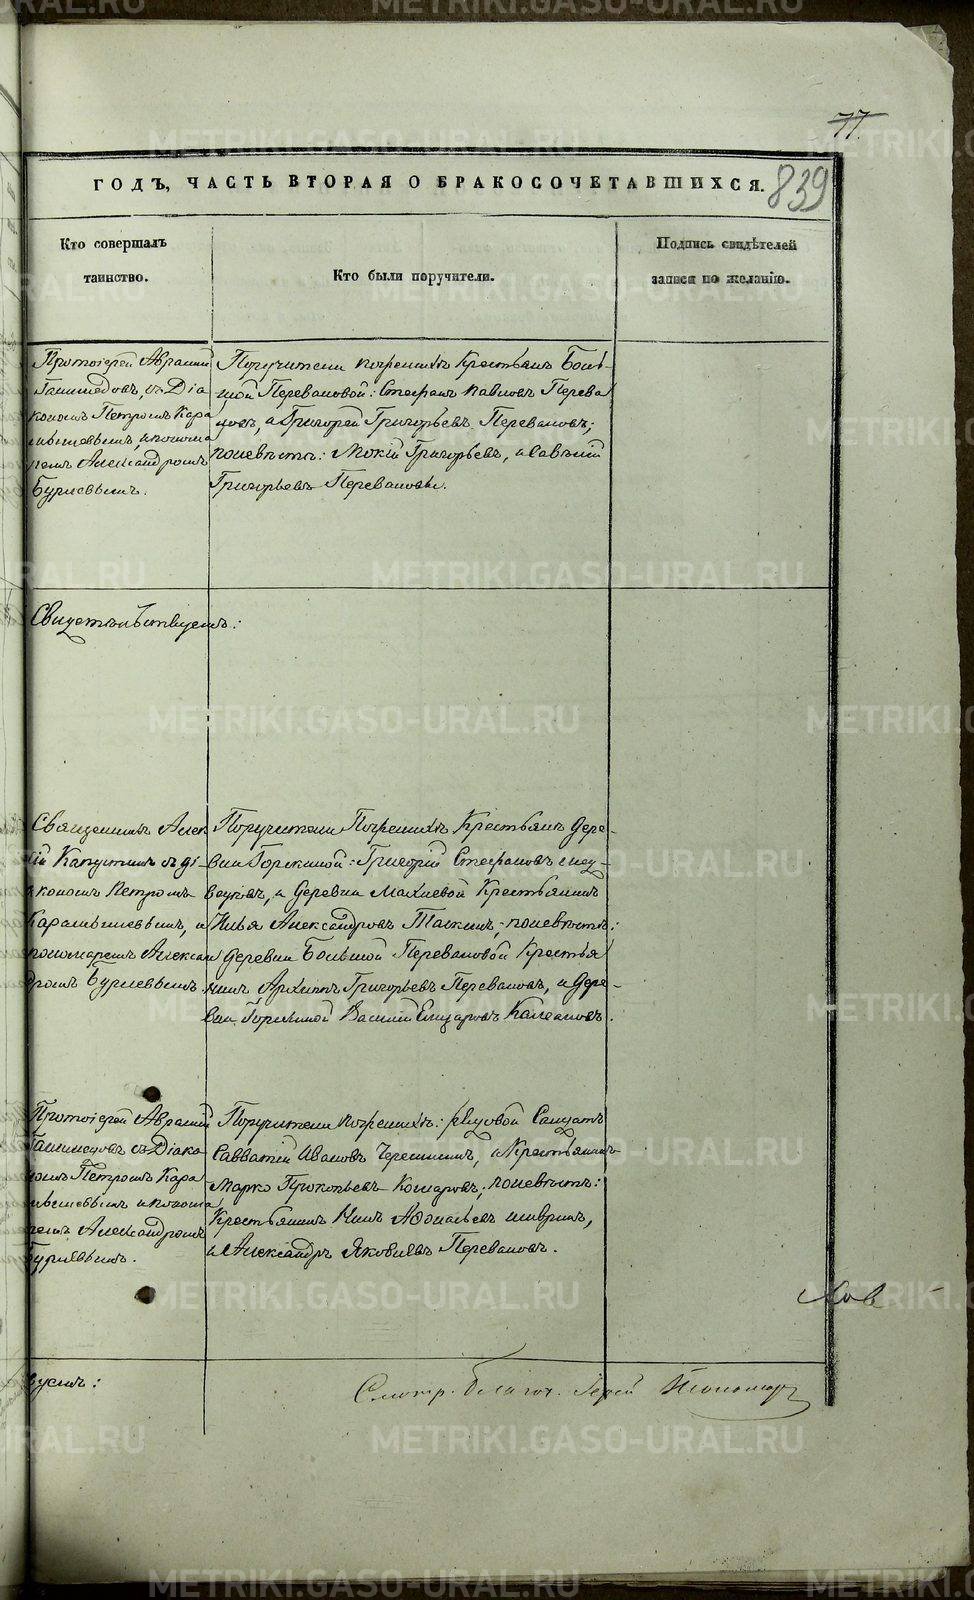 77.
ГОДЪ, ЧАСТЬ ВТОРАЯ О БРАКОСОЧЕТАВШИХСЯ.
839
Кто совершалъ
таинство.
Кто были поручители.
Подпись свидѣтелей
записи по желанію.
Протоіерей Авраамій
съ Діа
кономъ Петромъ Кара
мышевымъ, и понома
ремъ Александромъ
Бурцевымъ.
Поручители по женихѣ Крестьяне Боль
шой Переваловой: Стефанъ Павловъ Перева
ловъ, и Григорей Григорьевъ Переваловъ;
по невѣстѣ: Мокій Григорьевъ, и Савватій
Григорьевъ Переваловы.
Свидетельствуемъ:
Священникъ Алек
сій Капустинъ съ ді-
акономъ Петромъ
Карамышевымъ, и
пономаремъ Алексан
дромъ Бурцевымъ.
Поручители По женихѣ Крестьяне дере-
вни Горскиной: Григорій Стефановъ
и деревни Махневой Крестьянинъ
Илья Александровъ Таскинъ; по невѣстѣ:
деревни Большой Переваловой Крестья
нинъ Архипъ Григорьевъ Переваловъ, и дере-
вни Горскиной Василій Елизаровъ
Протоіерей Авраамій
съ Діако
номъ Петромъ Кара
мышевымъ и понома
ремъ Александромъ
Бурцевымъ.
Поручители по женихѣ: рядовой Солдатъ
Савватій Ивановъ Черемнинъ, и Крестьянинъ
Марко Прокопьевъ Комаровъ; по невѣстѣ:
Крестьянинъ Нилъ Афонасьевъ
и Александръ Яковлевъ Переваловъ.
вуемъ:
Смотр. благоч. Іерей
METRIKI.GASO-URAL.RU